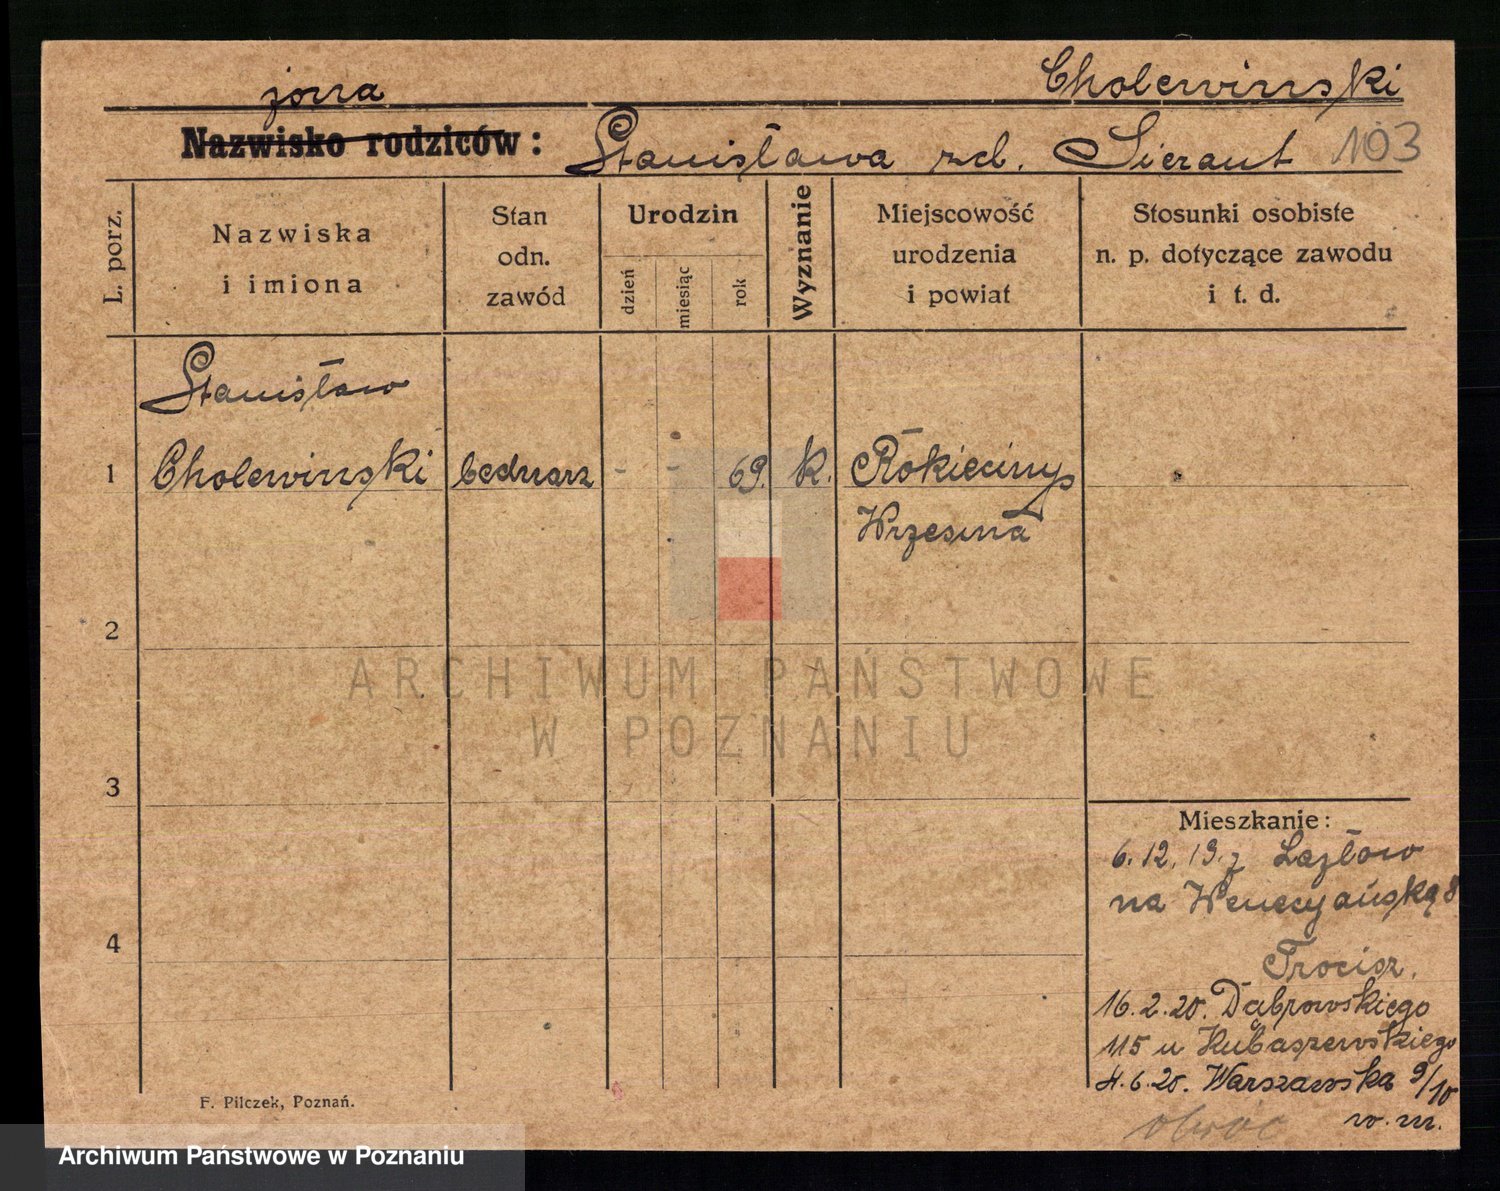 Cholewinski
żona
Nazwisko rodziców: Stanisława zd. Sierant 103
L. porz.
Nazwiska
i imiona
Stan
odn.
zawód
Urodzin
dzień
miesiąc
rok
Wyznanie
Miejscowość
urodzenia
i powiat
Stosunki osobiste
n. p. dotyczące zawodu
i t. d.
Stanisław
1 Cholewinski bednarz - - 69. k. Rokieciny
Września
2
3
4
Mieszkanie:
6.12.19. z Lazłow
na Wenecyańską 8
16.2.20. Dąbrowskiego
115 u Kubaszewskiego
4.6.20. Warszawska 9/10
w. m.
obróć
F. Pilczek, Poznań.
ARCHIWUM PAŃSTWOWE
W POZNANIU
Archiwum Państwowe w Poznaniu